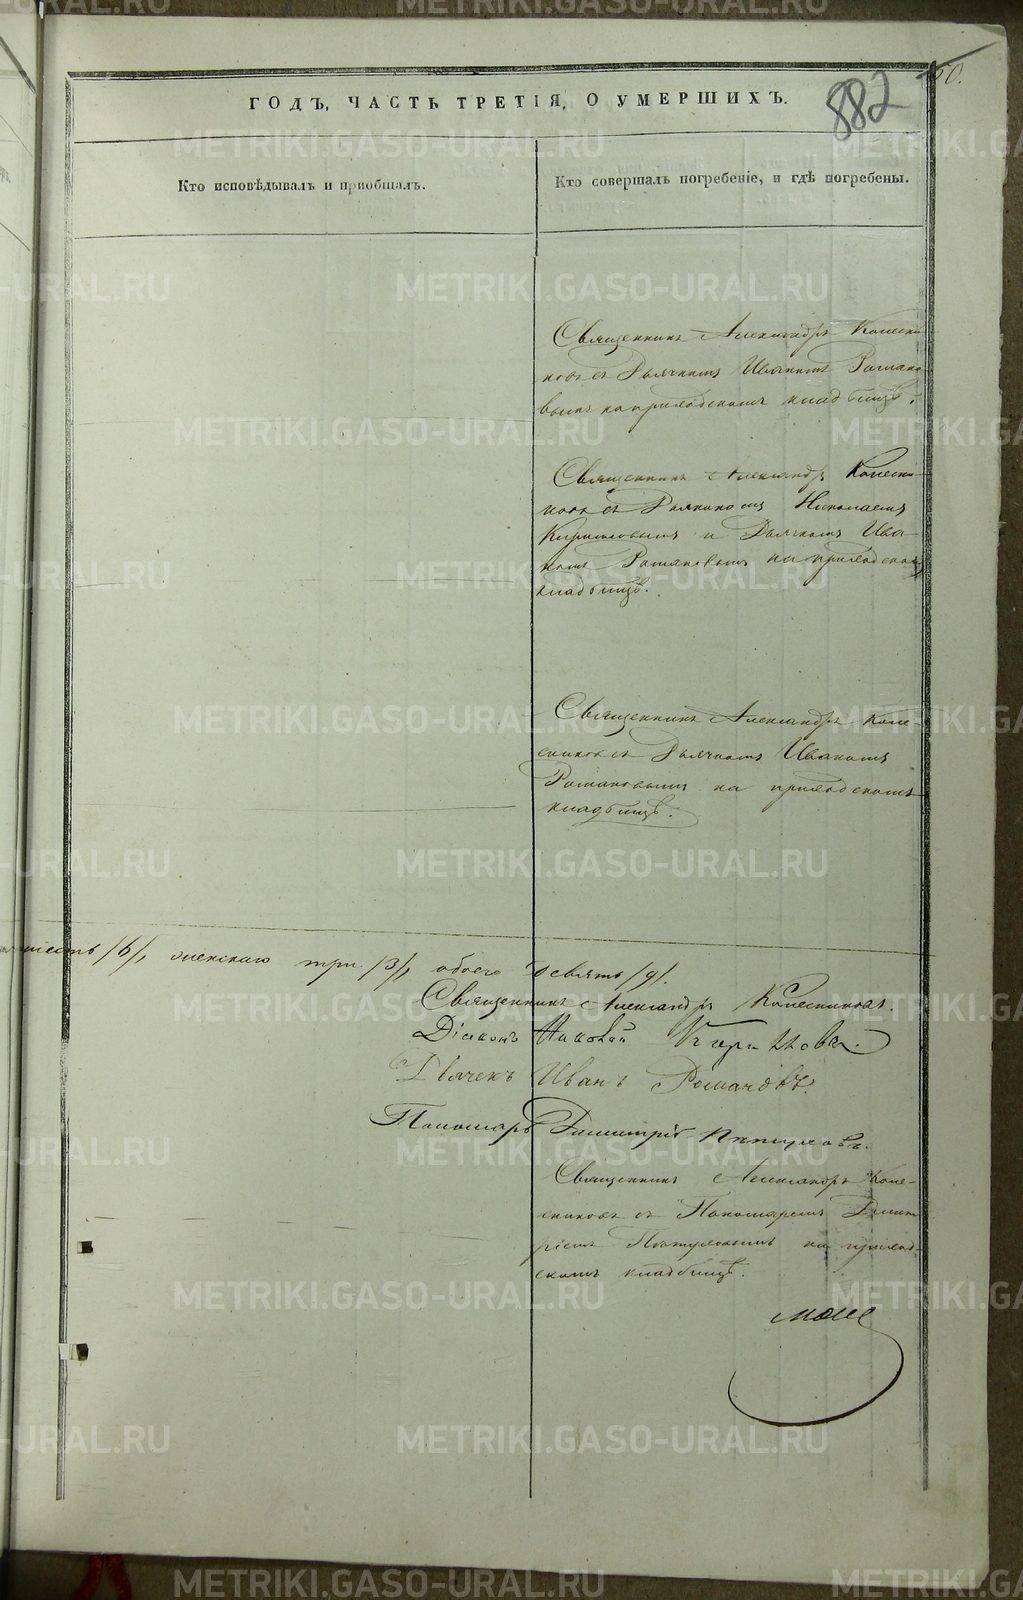 50.
882
ГОДЪ, ЧАСТЬ ТРЕТІЯ, О УМЕРШИХЪ.
Кто исповѣдывалъ и пріобщалъ.
Кто совершалъ погребеніе, и гдѣ погребены.
Священникъ Александръ Колесни
ковъ съ Дьячкомъ Иваномъ Романо
вымъ на приходскомъ кладбищѣ.
Священникъ Александръ Колесни-
ковъ съ Діакономъ Николаемъ
Кирилловымъ и Дьячкомъ Ива-
номъ Романовымъ на приходскомъ
кладбищѣ.
Священникъ Александръ Коле-
сниковъ съ Дьячкомъ Иваномъ
Романовымъ на приходскомъ
кладбищѣ.
шесть /6/, женскаго три /3/, обоего девять /9/.
Священникъ Александръ Колесниковъ.
Діаконъ Николай Кирилловъ.
Дьячекъ Иванъ Романовъ.
Пономарь Димитрій
Священникъ Александръ Коле-
сниковъ съ Пономаремъ Димит
ріемъ на приход-
скомъ кладбищѣ.
METRIKI.GASO-URAL.RU